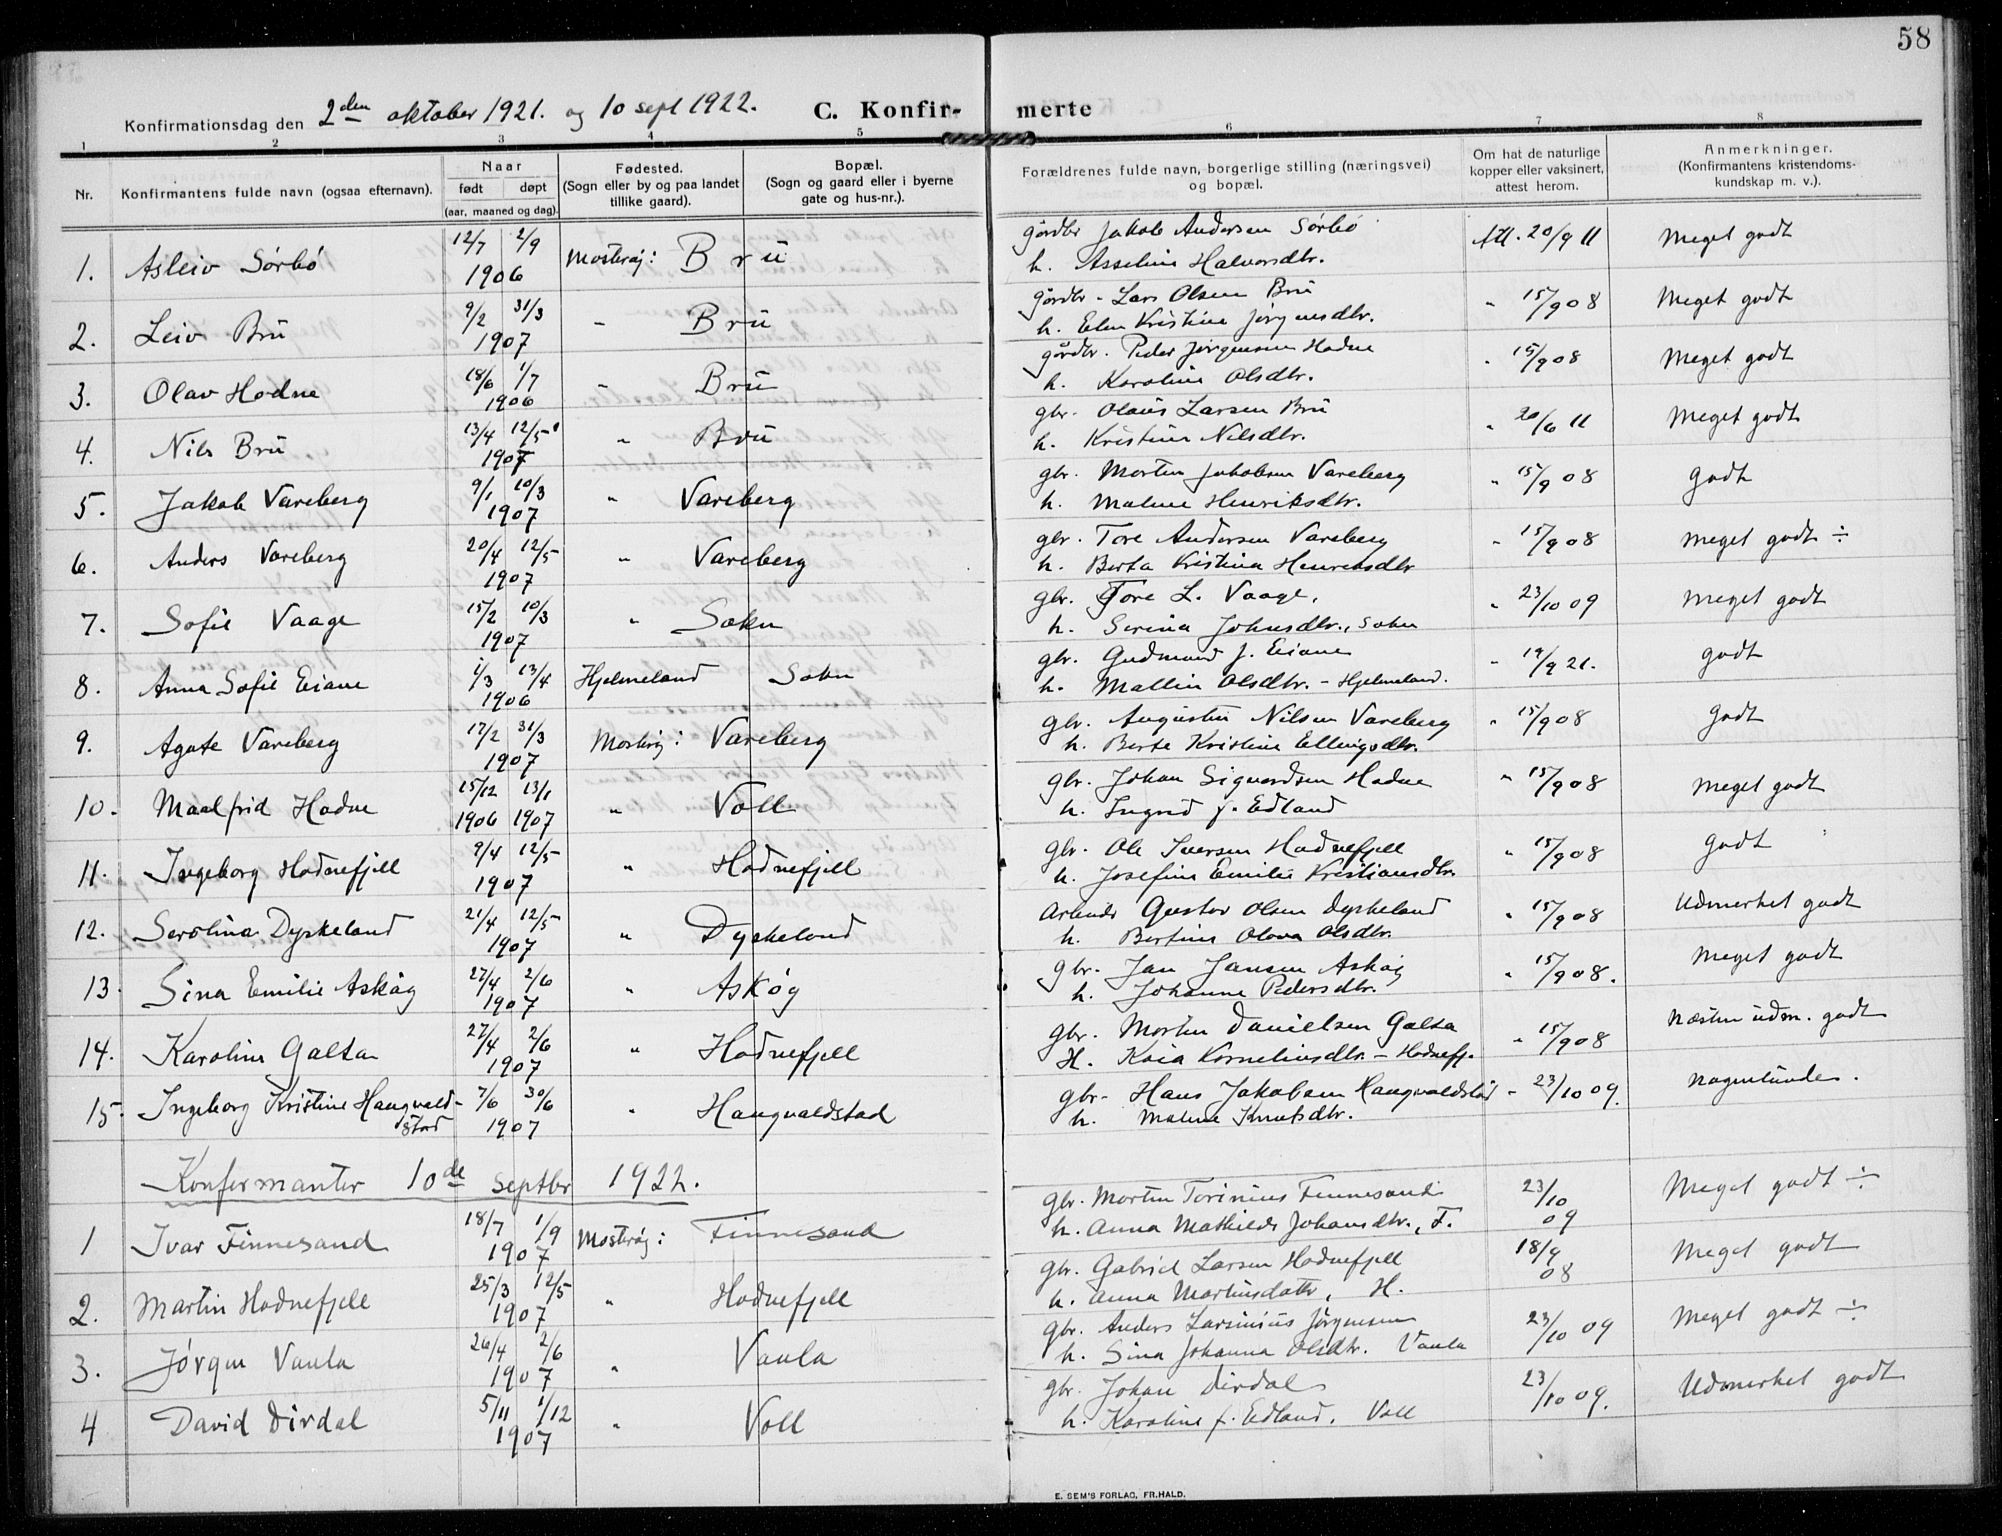 58
Konfirmationsdag den 2den oktober 1921. og 10 sept 1922. C. Konfir- merte
1 2 3 4 5 6 7 8
Nr. Konfirmantens fulde navn (ogsaa efternavn). Naar født døpt (aar, maaned og dag). Fødested. (Sogn eller by og paa landet tillike gaard). Bopæl. (Sogn og gaard eller i byerne gate og hus-nr.). Forældrenes fulde navn, borgerlige stilling (næringsvei) og bopæl. Om hat de naturlige kopper eller vaksinert, attest herom. Anmerkninger. (Konfirmantens kristendoms- kundskap m. v.).
1. Asleiv Sørbø 12/7 2/9 1906 Mosterøy: Brü gårdbr Jakob Andersen Sørbø Att. 20/9 11 Meget godt
h. Asseline Halvorsdtr.
2. Leiv Brü 9/2 31/3 1907 " Brü gårdbr. Lars Olsen Brü " 15/9 08 Meget godt
h. Elen Kristine Jørgensdtr.
3. Olav Hodne 18/6 1/7 1906 " Brü gårdbr. Peder Jørgensen Hodne " 15/9 08 Meget godt
h. Karoline Olsdtr.
4. Nils Brü 13/4 12/5 1907 " Brü gbr. Olaüs Larsen Brü " 20/6 11 Meget godt
h. Kristine Nilsdtr.
5. Jakob Vareberg 9/1 10/3 1907 " Vareberg gbr. Morten Jakobsen Vareberg " 15/9 08 godt
h. Malene Henriksdtr.
6. Anders Vareberg 20/4 12/5 1907 " Vareberg gbr. Tore Andersen Vareberg " 15/9 08 Meget godt ÷
h. Berta Kristina Henriksdtr
7. Sofie Vaage 15/2 10/3 1907 " Sokn gbr. Tore L. Vaage, " 23/10 09 Meget godt
h. Serina Johnsdtr., Sokn
8. Anna Sofie Eiane 1/3 13/4 1906 Hjelmeland Sokn gbr. Gudmund J. Eiane " 19/9 21. godt
h. Mallin Olsdtr. - Hjelmeland.
9. Agate Vareberg 17/2 31/3 1907 Mosterøy: Vareberg gbr. Augustin Nilsen Vareberg " 15/9 08 godt
h. Berte Kristine Ellingsdtr.
10. Maalfrid Hodne 15/12 13/1 1906 1907 " Voll gbr. Johan Sigvardsen Hodne " 15/9 08 Meget godt
h. Ingrid f. Edland
11. Ingeborg Hodnefjell 9/4 12/5 1907 " Hodnefjell gbr. Ole Iversen Hodnefjell " 15/9 08 godt
h. Josefine Emilie Kristiansdtr.
12. Serolina Dyskeland 21/4 12/5 1907 " Dyskeland Arbeider Gustav Olsen Dyskeland " 15/9 08 Udmerket godt
h. Bertine Olava Olsdtr.
13. Sina Emilie Askøy 27/4 2/6 1907 " Askøy gbr. Jan Jansen Askøy " 15/9 08. Meget godt
h. Johanne Pedersdtr.
14. Karoline Galta 27/4 2/6 1907 " Hodnefjell gbr. Morten Danielsen Galta " 15/9 08 Næsten udm. godt
H. Kaia Korneliusdtr. - Hodnefj.
15. Ingeborg Kristine Haugvald- stad 7/6 30/6 1907 " Haugvaldstad gbr- Hans Jakobsen Haugvaldstad - 23/10 09. nogenlunde.
h. Malene Knutsdtr.
Konfermanter 10de septbr 1922.
1 Ivar Finnesand 18/7 1/9 1907 Mosterøy: Finnesand gbr. Morten Torinius Finnesand 23/10 09 Meget godt ÷
h. Anna Mathilde Johansdtr., F.
2. Martin Hodnefjell 25/3 12/5 1907 " Hodnefjell gbr. Gabriel Larsen Hodnefjell 18/9 08 Meget godt
h. Anna Martinsdatr, H.
3. Jørgen Vaula 26/4 2/6 1907 " Vaula gbr. Anders Larsinius Jørgensen 23/10 09 Meget godt ÷
h. Sina Johanna Olsdtr. Vaula
4 David Dirdal 5/11 1/12 1907 " Voll gbr. Johan Dirdal 23/10 09. Udmerket godt
h. Karoline f. Edland, Voll
E. SEM'S FORLAG, FR.HALD.